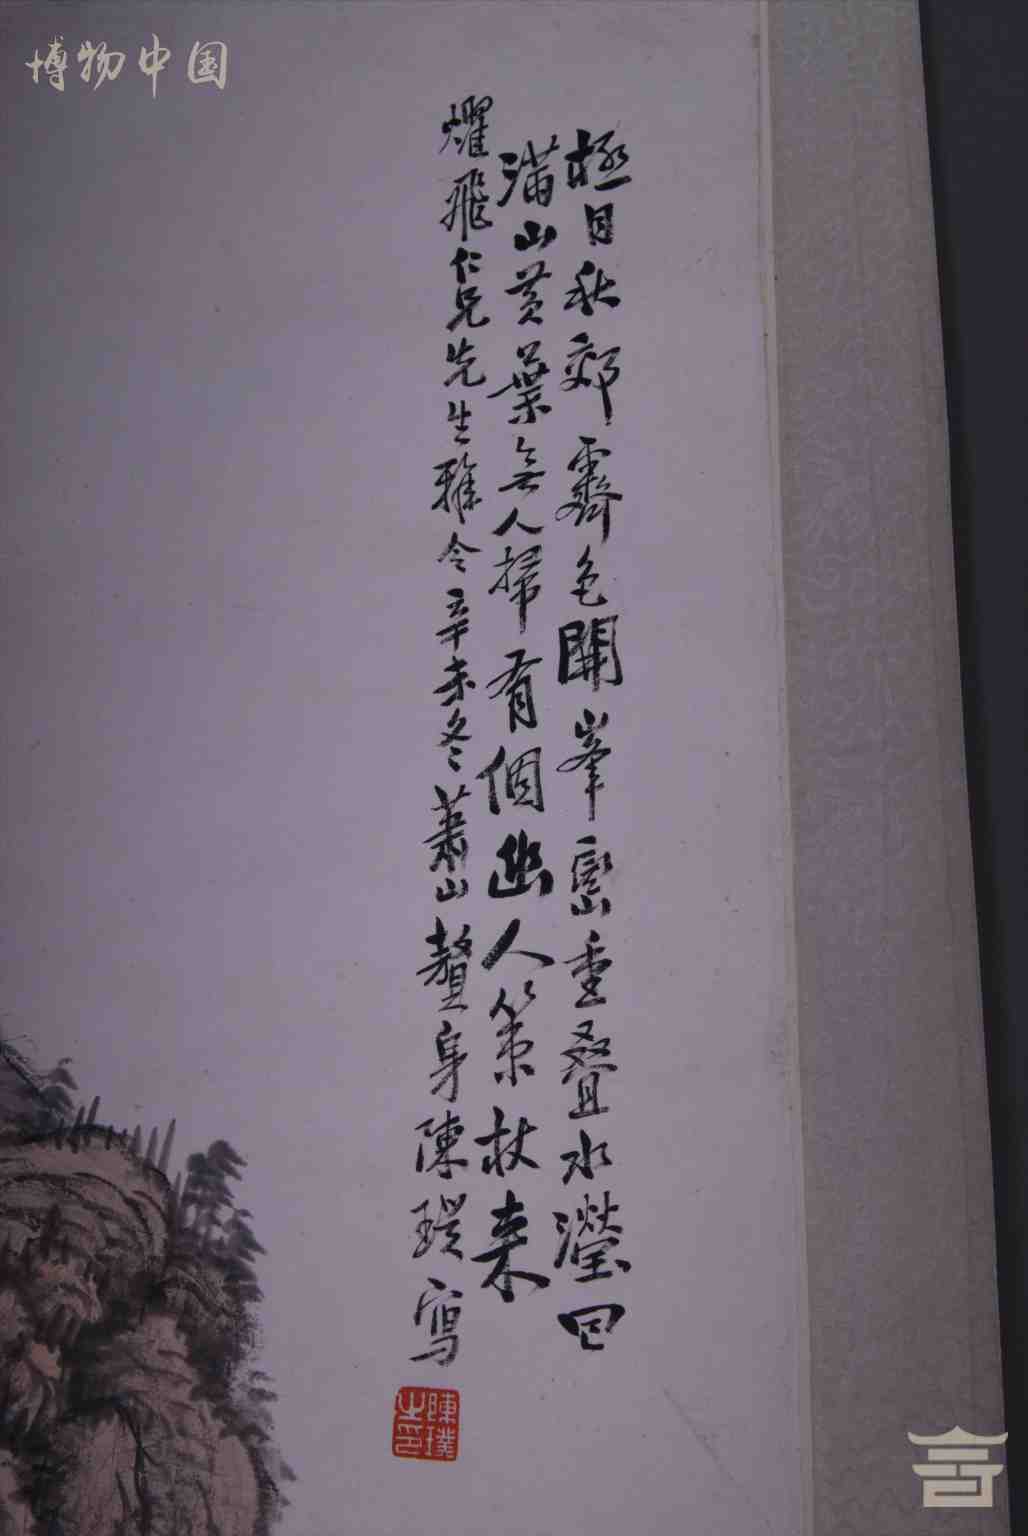 博物中国
極目秋郊霽色開峯巒重疊水瀠回
滿山黃葉無人掃有個幽人策杖来
燿飛仁兄先生雅令辛未冬蕭山贅身陳璞寫
陳璞之印